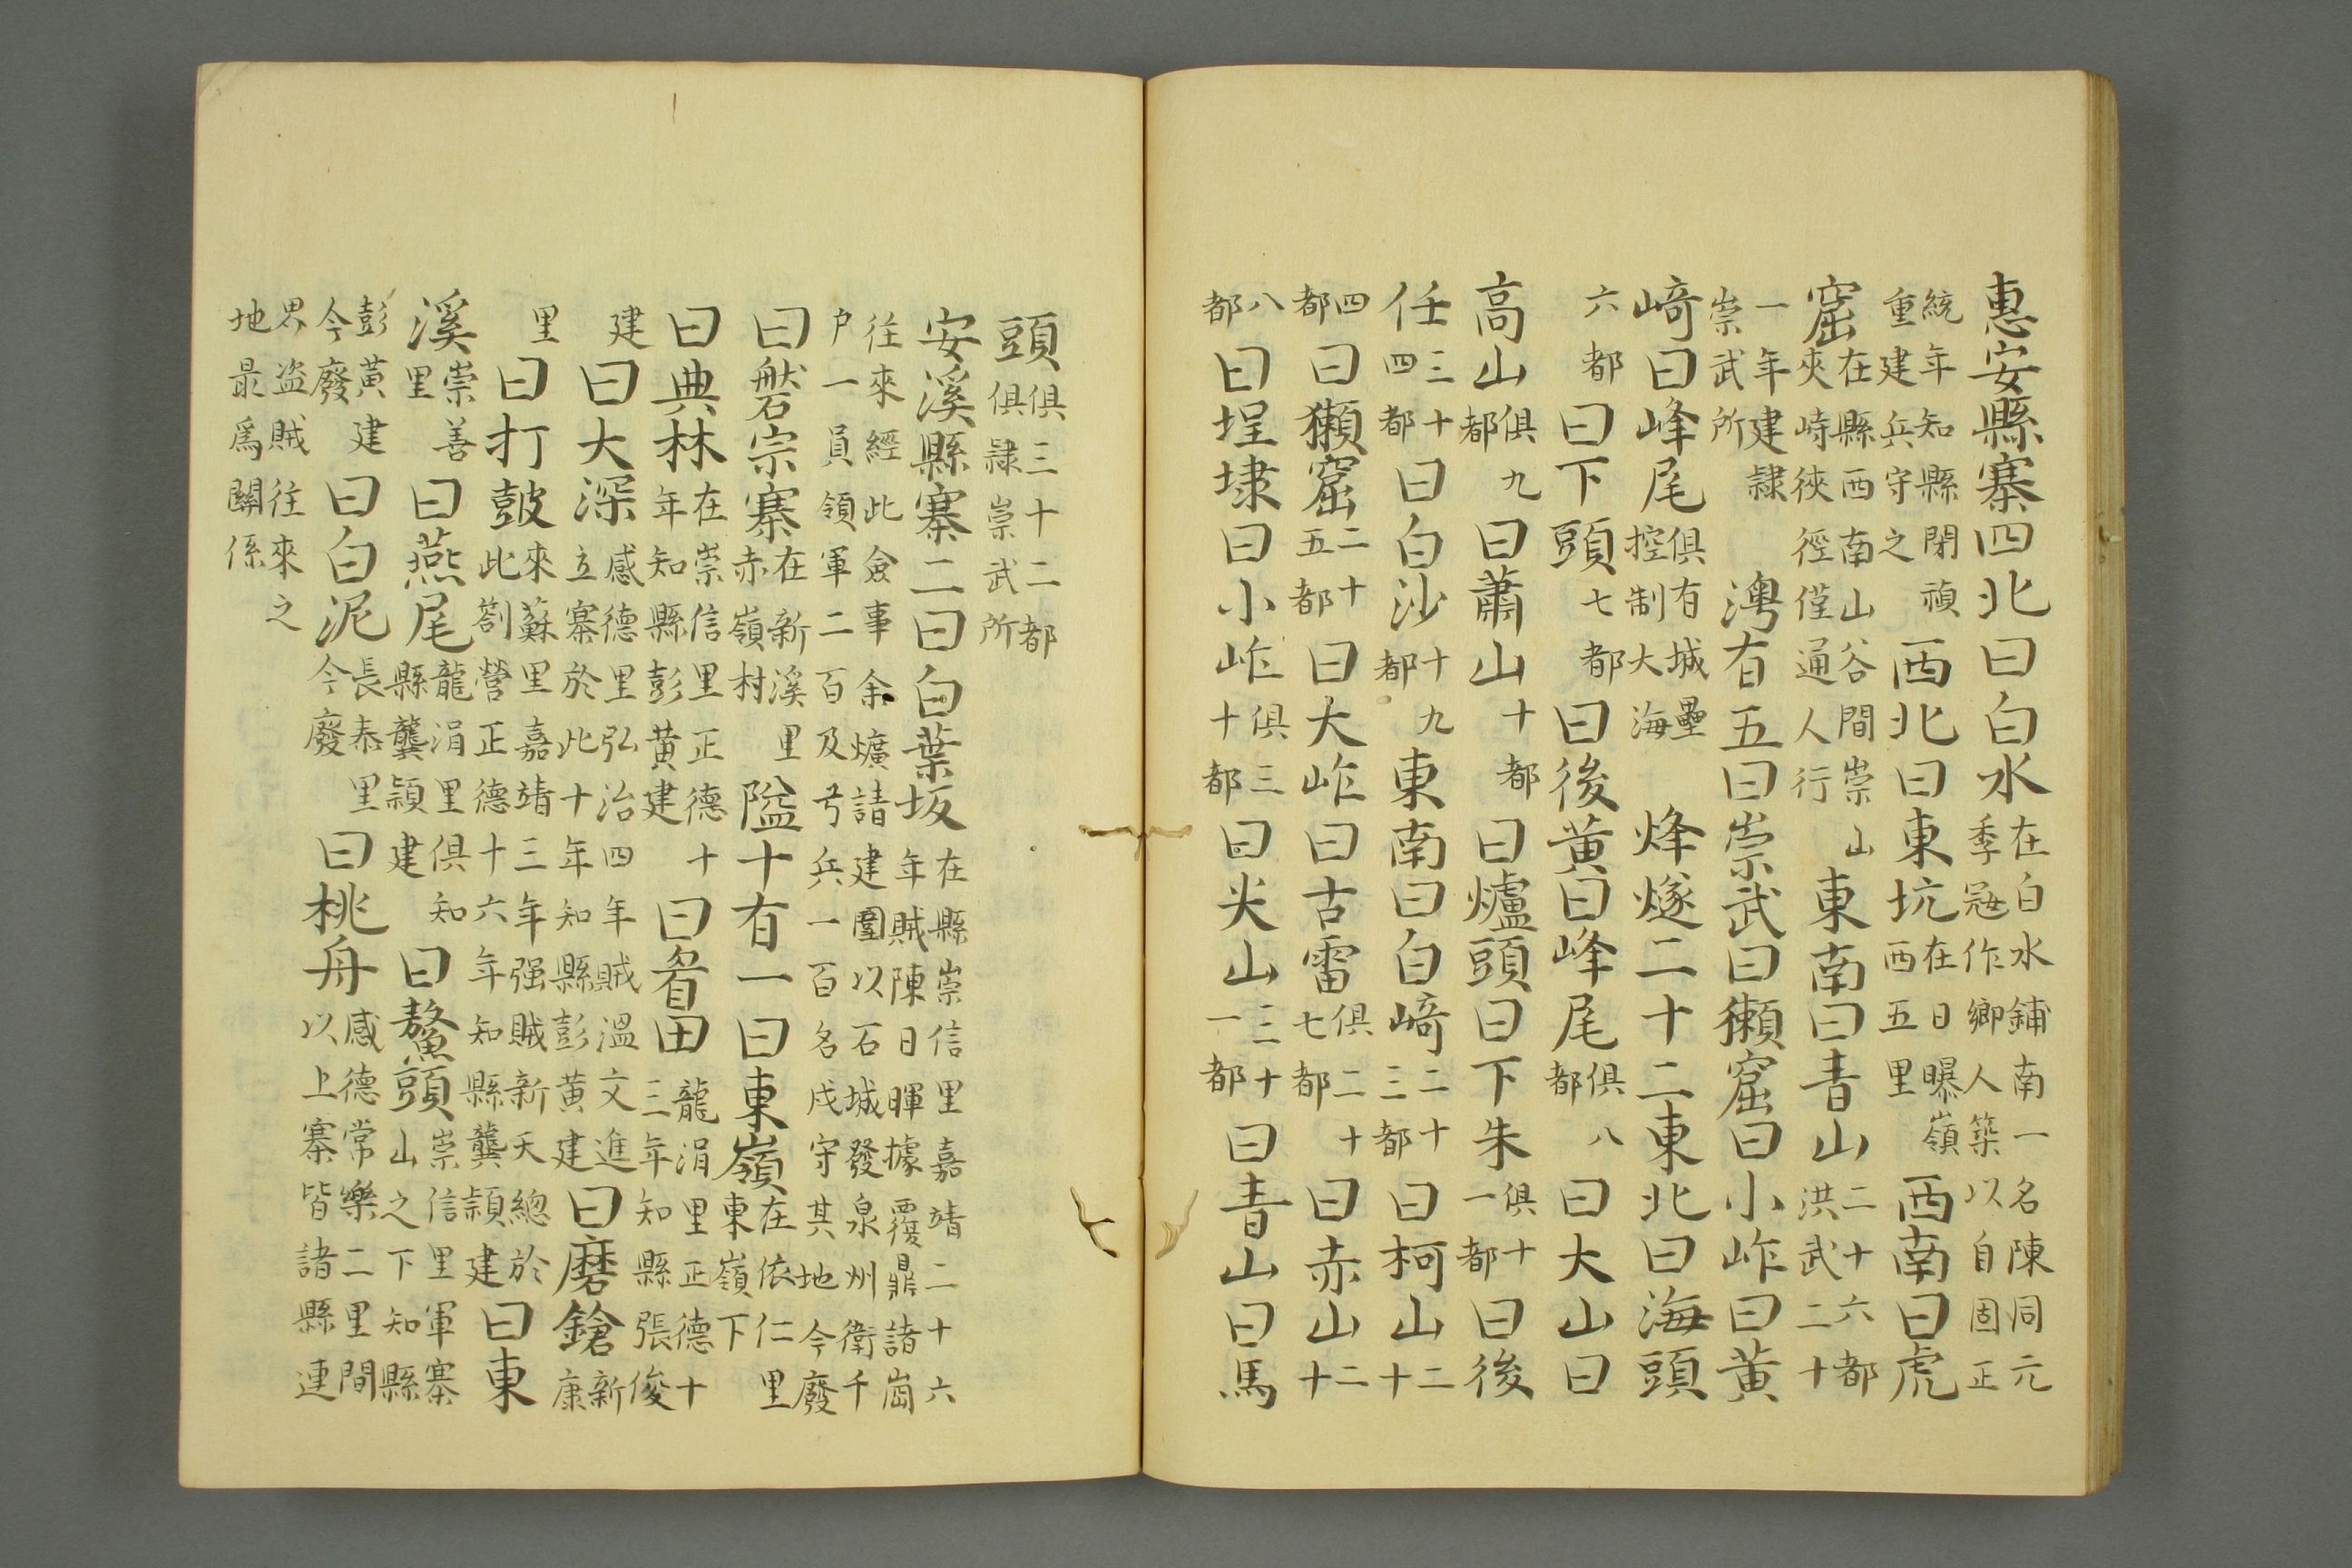 惠安縣寨四北曰白水在白水鋪南一名陳同元季冦作鄉人築以自固正
統年知縣閉禎重建兵守之西北曰東坑在日曝嶺西五里西南曰虎
窟在縣西南山谷間崇山夾峙狹徑僅通人行東南曰青山二十六都洪武二十
一年建隸崇武所澚有五曰崇武曰獺窟曰小岞曰黃
崎曰峰尾俱有城壘控制大海烽燧二十二東北曰海頭
六都曰下頭七都曰後黄曰峰尾俱八都曰大山曰
高山俱九都曰蕭山十都曰爐頭曰下朱俱十一都曰後
任三十四都曰白沙十九都東南曰白崎二十三都曰柯山二十
四都曰獺窟二十五都曰大岞曰古雷俱二十七都曰赤山二十
八都曰埕埭曰小岞俱三十都曰尖山三十一都曰青山曰馬
頭俱三十二都俱隸崇武所
安溪縣寨二曰白葉坂在縣崇信里嘉靖二十六年賊陳日暉據覆鼎諸崮
往來經此僉事余爌請建圍以石城發泉州衛千戶一員領軍二百及弓兵一百名戍守其地今廢
曰磐宗寨在新溪里赤嶺村隘十有一曰東嶺在依仁里東嶺下
曰典林在崇信里正德十年知縣彭黄建曰㸔田龍涓里正德十三年知縣張俊
建曰大深感德里弘治四年賊溫文進立寨於此十年知縣彭黄建曰磨鎗新康
里曰打鼓來蘇里嘉靖三年强賊新天總於此劄營正德十六年知縣龔頴建曰東
溪崇善里曰燕尾龍涓里俱知縣龔頴建曰鰲頭崇信里軍寨山之下知縣
彭黄建今廢曰白泥長泰里今廢曰桃舟感德常樂二里間以上寨皆諸縣連
界盗賊往來之地最爲關係